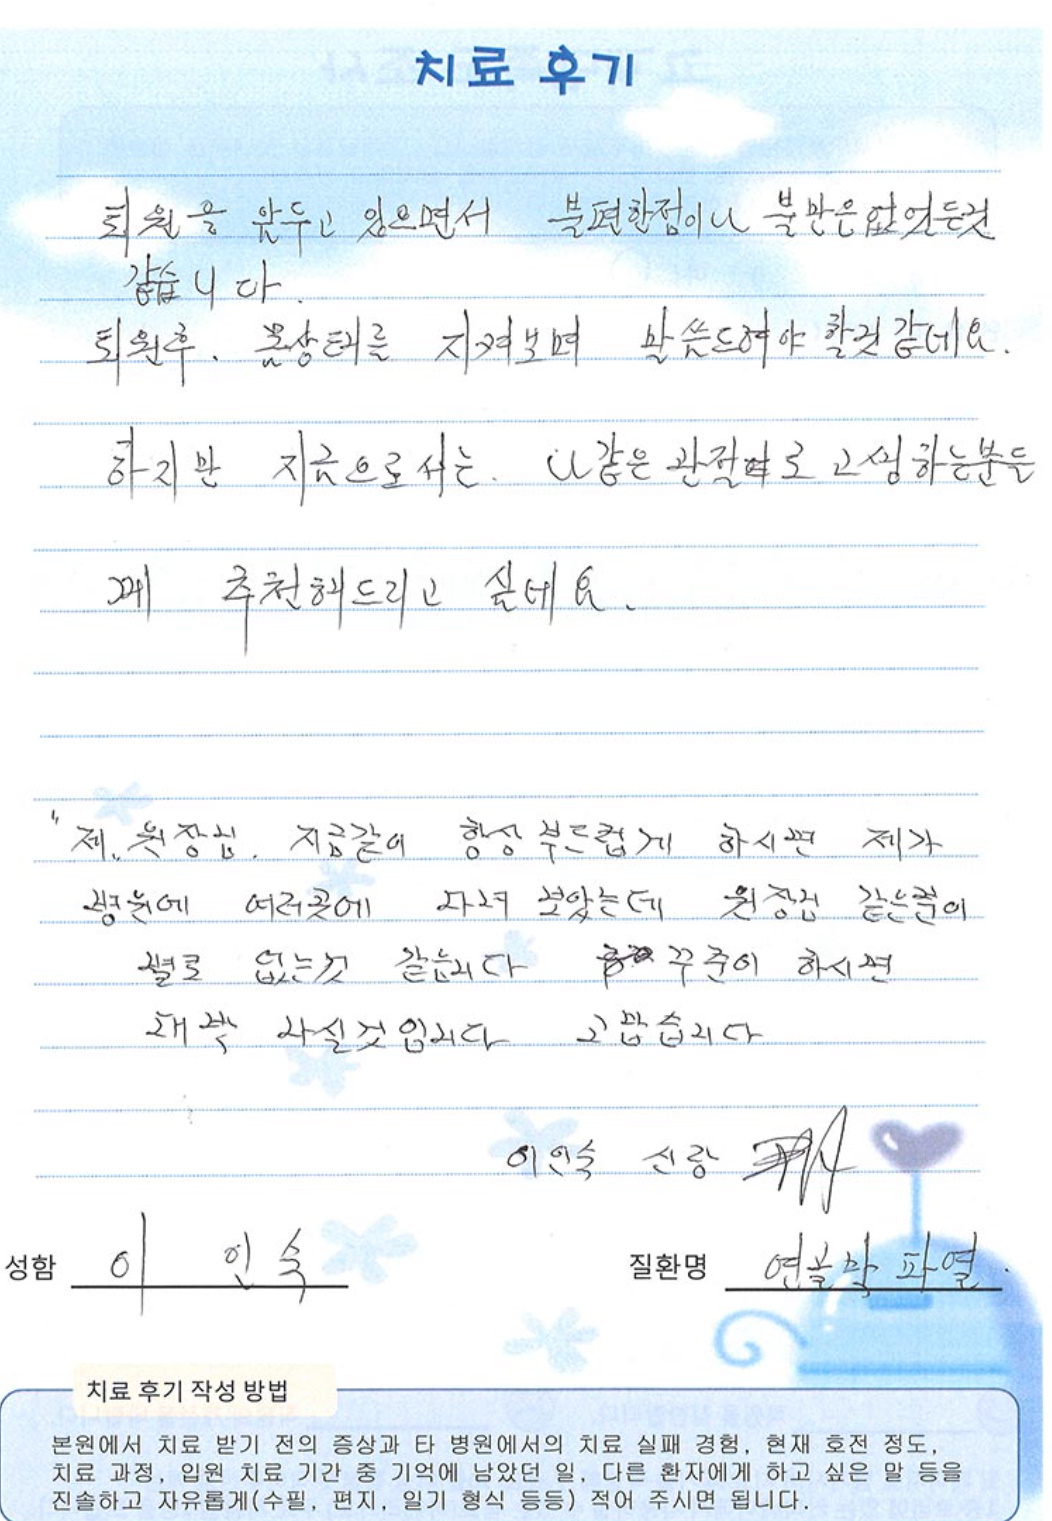 치료 후기
퇴원을 앞두고 있으면서 불편한점이나 불만은없었든것
같습니다.
퇴원후. 몸상태를 지켜보며 말씀드려야 할것같네요.
하지만 지금으로서는. 나같은 관절로 고생하는분들
께 추천해드리고 싶네요.
"제,, 원장님. 지금같이 항상 부드럽게 하시면 제가
병원에 여러곳에 다녀 보았는데 원장님 같은분이
별로 없는것 같습니다 꾸준이 하시면
대박 나실것입니다 고맙습니다
이인숙 신랑
성함 이 인숙 질환명 연골막 파열.
치료 후기 작성 방법
본원에서 치료 받기 전의 증상과 타 병원에서의 치료 실패 경험, 현재 호전 정도,
치료 과정, 입원 치료 기간 중 기억에 남았던 일, 다른 환자에게 하고 싶은 말 등을
진솔하고 자유롭게(수필, 편지, 일기 형식 등등) 적어 주시면 됩니다.